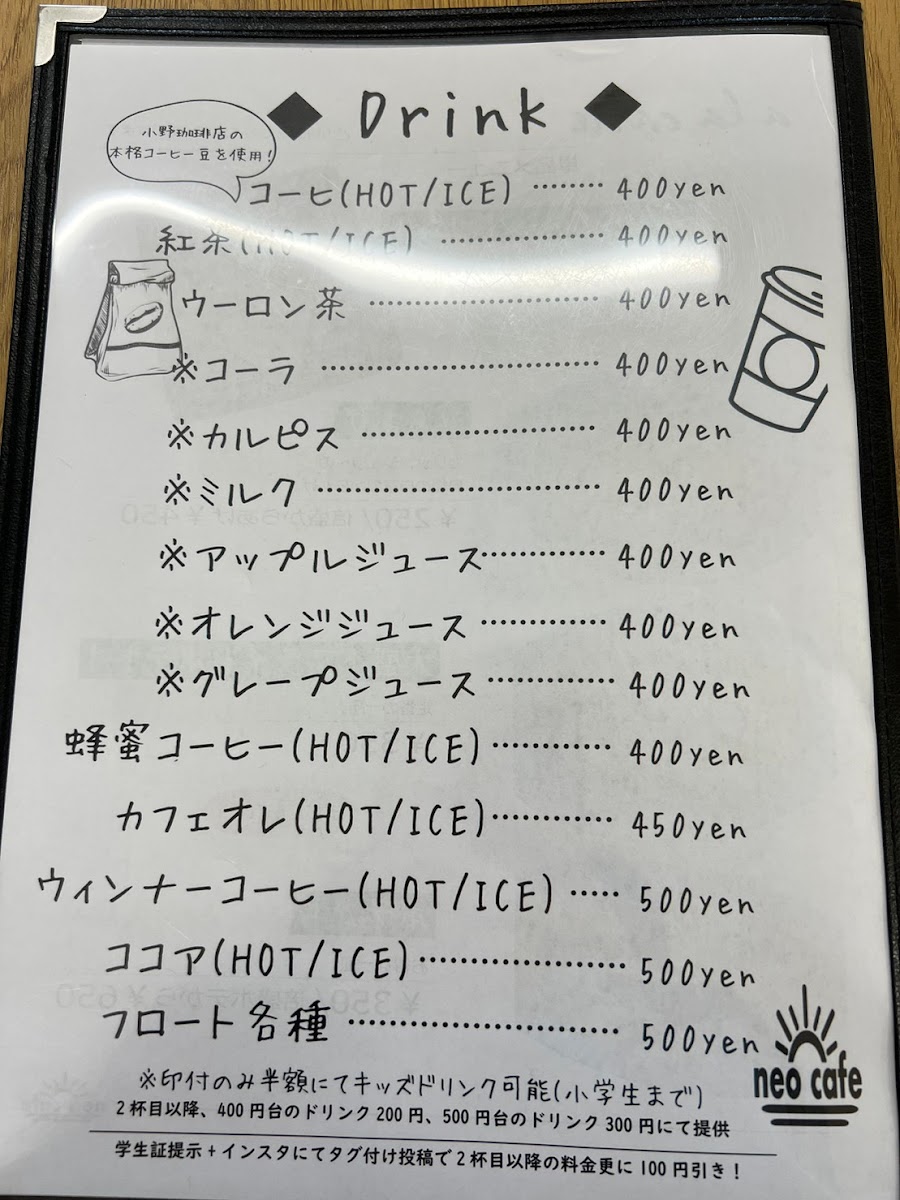 ◆ Drink ◆
小野珈琲店の
本格コーヒー豆を使用!
コーヒ(HOT/ICE) ……… 400yen
紅茶(HOT/ICE) ……………… 400yen
ウーロン茶 ……………………… 400yen
※コーラ ………………………… 400yen
※カルピス ……………………… 400yen
※ミルク ………………………… 400yen
※アップルジュース………… 400yen
※オレンジジュース ………… 400yen
※グレープジュース ………… 400yen
蜂蜜コーヒー(HOT/ICE)………… 400yen
カフェオレ(HOT/ICE)………… 450yen
ウィンナーコーヒー(HOT/ICE) …… 500yen
ココア(HOT/ICE)………………… 500yen
フロート各種 ……………………… 500yen
※印付のみ半額にてキッズドリンク可能(小学生まで)
2杯目以降、400円台のドリンク200円、500円台のドリンク300円にて提供
学生証提示+インスタにてタグ付け投稿で2杯目以降の料金更に100円引き!
neo cafe